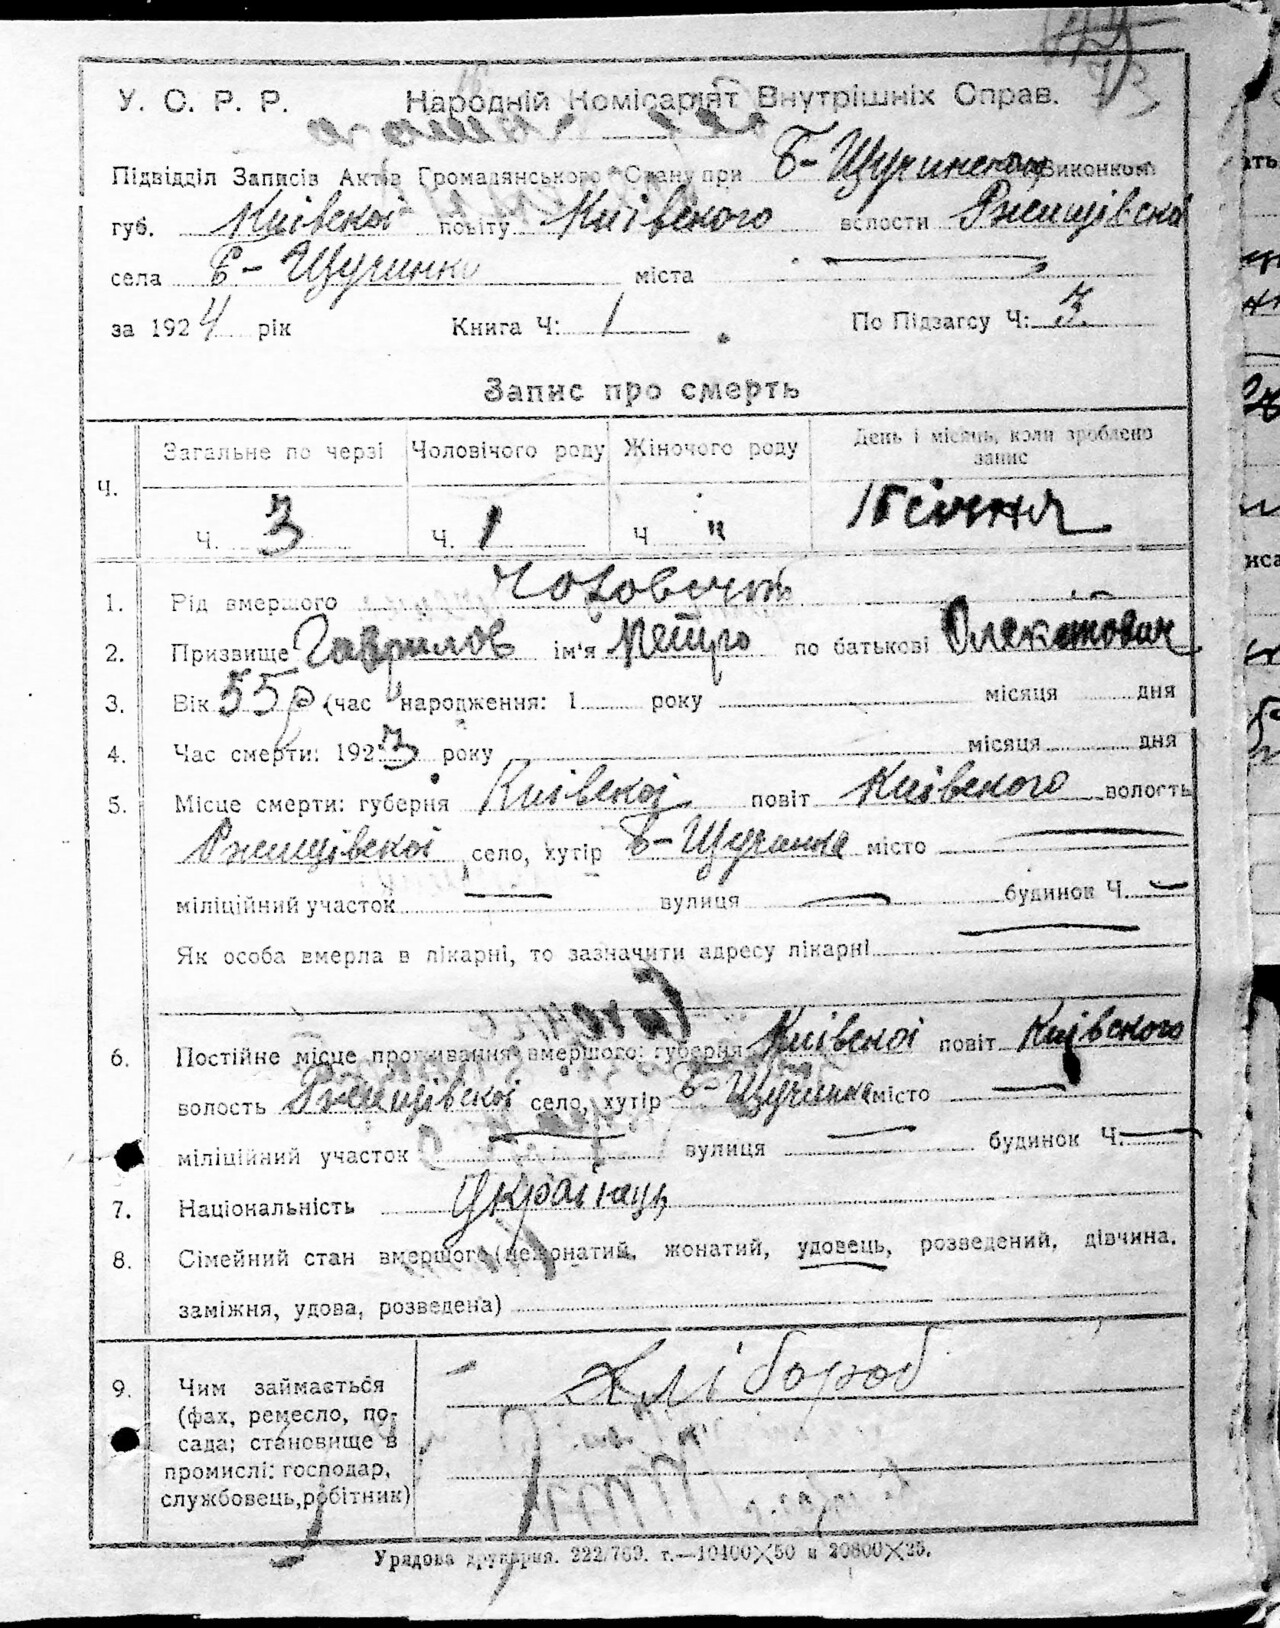 73
У. С. Р. Р. Народній Комісаріят Внутрішніх Справ.
Підвідділ Записів Актів Громадянського Стану при Б-Щучинском Виконкомі
губ. Київскої повіту Київского волости Ржищівскої
села Б-Щучинка міста
за 1924 рік Книга Ч: 1 По Підзагсу Ч: 3
Запис про смерть
Ч. Загальне по черзі Чоловічого роду Жіночого роду День і місяць, коли зроблено запис
Ч. 3 Ч. 1 Ч " січня
1. Рід вмершого Чоловичий
2. Призвище Гаврилов ім'я Петро по батькові
3. Вік 55 р (час народження: 1 року місяця дня
4. Час смерти: 1923 року місяця дня
5. Місце смерти: губерня Київскої повіт Київского волость
Ржищівскої село, хутір Б-Щучинка місто
міліційний участок вулиця будинок Ч.
Як особа вмерла в лікарні, то зазначити адресу лікарні
6. Постійне місце проживання вмершого: губерня Київскої повіт Київского
волость Ржищівскої село, хутір Б-Щучинка місто
міліційний участок вулиця будинок Ч.
7. Національність Українець
8. Сімейний стан вмершого (нежонатий, жонатий, удовець, розведений, дівчина,
заміжня, удова, розведена)
9. Чим займається Хлібороб
(фах, ремесло, по-
сада; становище в
промислі: господар,
службовець, робітник)
Урядова друкарня. 222/769. т.—10400×50 и 20800×25.